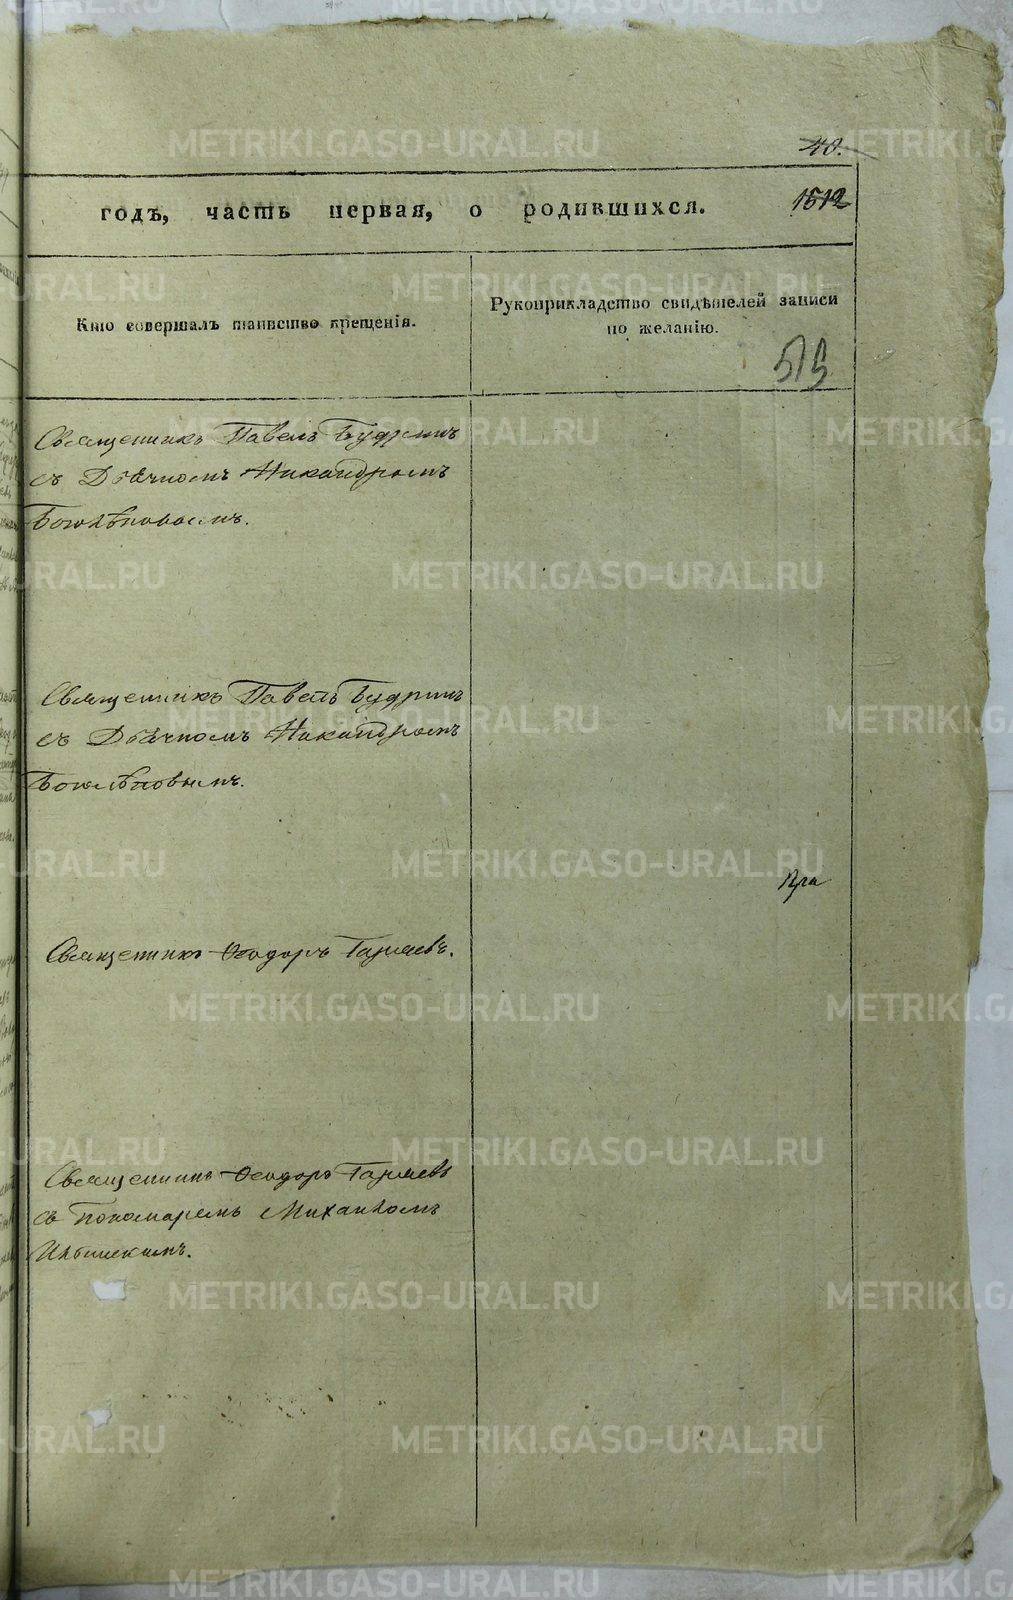 40.
годъ, часть первая, о родившихся.
1512
Кто совершалъ таинство крещенія.
Рукоприкладство свидѣтелей записи
по желанію.
515
Священникъ Павелъ Будринъ
съ Дьячкомъ Никандромъ
Боголѣповымъ.
Священникъ Павелъ Будринъ
съ Дьячкомъ Никандромъ
Боголѣповымъ.
Священникъ Ѳеодоръ Гаряевъ.
Священникъ Ѳеодоръ Гаряевъ
съ Пономаремъ Михаиломъ
Ильинскимъ.
METRIKI.GASO-URAL.RU